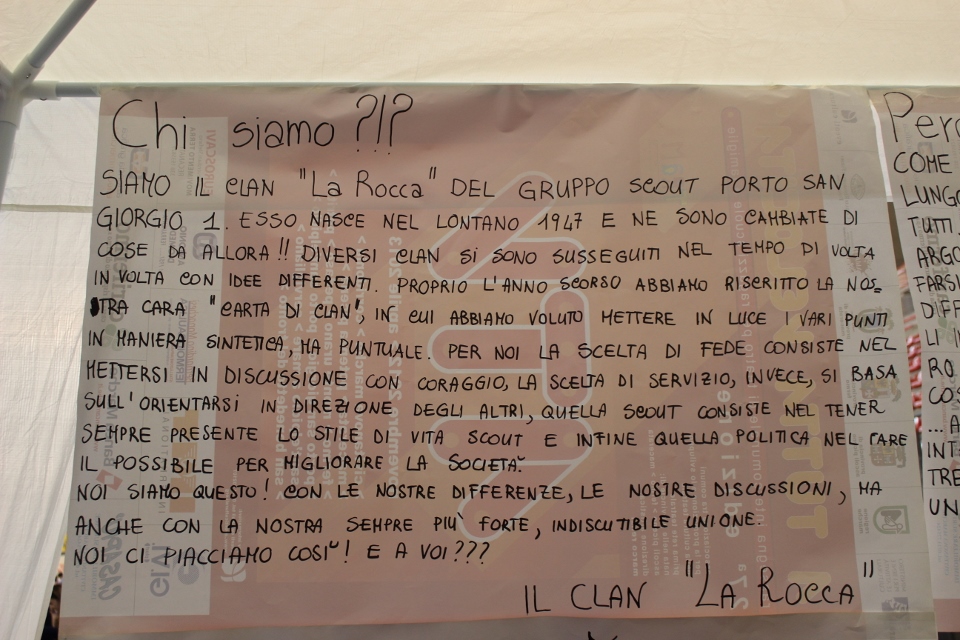 Chi siamo ?!?
SIAMO IL CLAN "La Rocca" DEL GRUPPO SCOUT PORTO SAN
GIORGIO 1. ESSO NASCE NEL LONTANO 1947 E NE SONO CAMBIATE DI
COSE DA ALLORA!! DIVERSI CLAN SI SONO SUSSEGUITI NEL TEMPO DI VOLTA
IN VOLTA CON IDEE DIFFERENTI. PROPRIO L'ANNO SCORSO ABBIAMO RISCRITTO LA NOS=
TRA CARA "CARTA DI CLAN", IN CUI ABBIAMO VOLUTO METTERE IN LUCE I VARI PUNTI
IN MANIERA SINTETICA, MA PUNTUALE. PER NOI LA SCELTA DI FEDE CONSISTE NEL
METTERSI IN DISCUSSIONE CON CORAGGIO, LA SCELTA DI SERVIZIO, INVECE, SI BASA
SULL'ORIENTARSI IN DIREZIONE DEGLI ALTRI, QUELLA SCOUT CONSISTE NEL TENER
SEMPRE PRESENTE LO STILE DI VITA SCOUT E INFINE QUELLA POLITICA NEL FARE
IL POSSIBILE PER MIGLIORARE LA SOCIETÀ.
NOI SIAMO QUESTO! CON LE NOSTRE DIFFERENZE, LE NOSTRE DISCUSSIONI, MA
ANCHE CON LA NOSTRA SEMPRE PIU' FORTE, INDISCUTIBILE UNIONE.
NOI CI PIACCIAMO COSI'! E A VOI???
IL CLAN "LA ROCCA"
COME
TUTTI